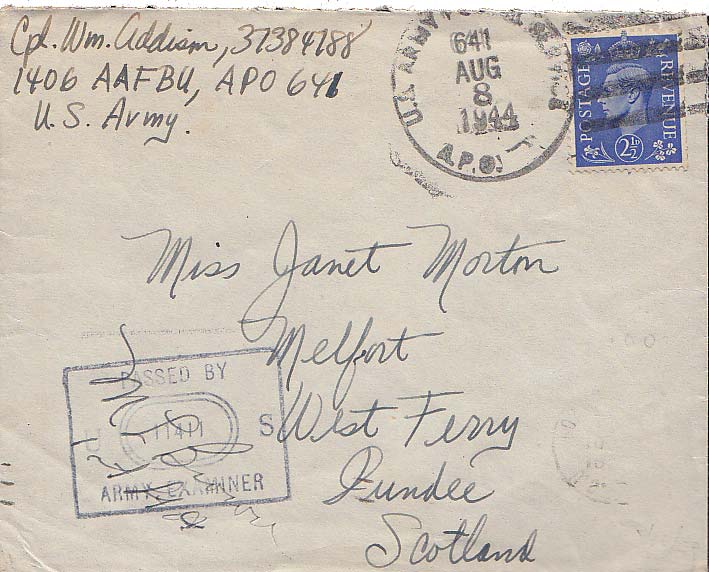 Cpl. Wm. Addison, 37384788
1406 AAFBU, APO 641
U.S. Army.
U.S. ARMY
641
AUG
8
1944
A.P.O.
POSTAGE
REVENUE
2½D
Miss Janet Morton
Melfort
West Ferry
Dundee
Scotland
PASSED BY
U 11411 S
ARMY EXAMINER